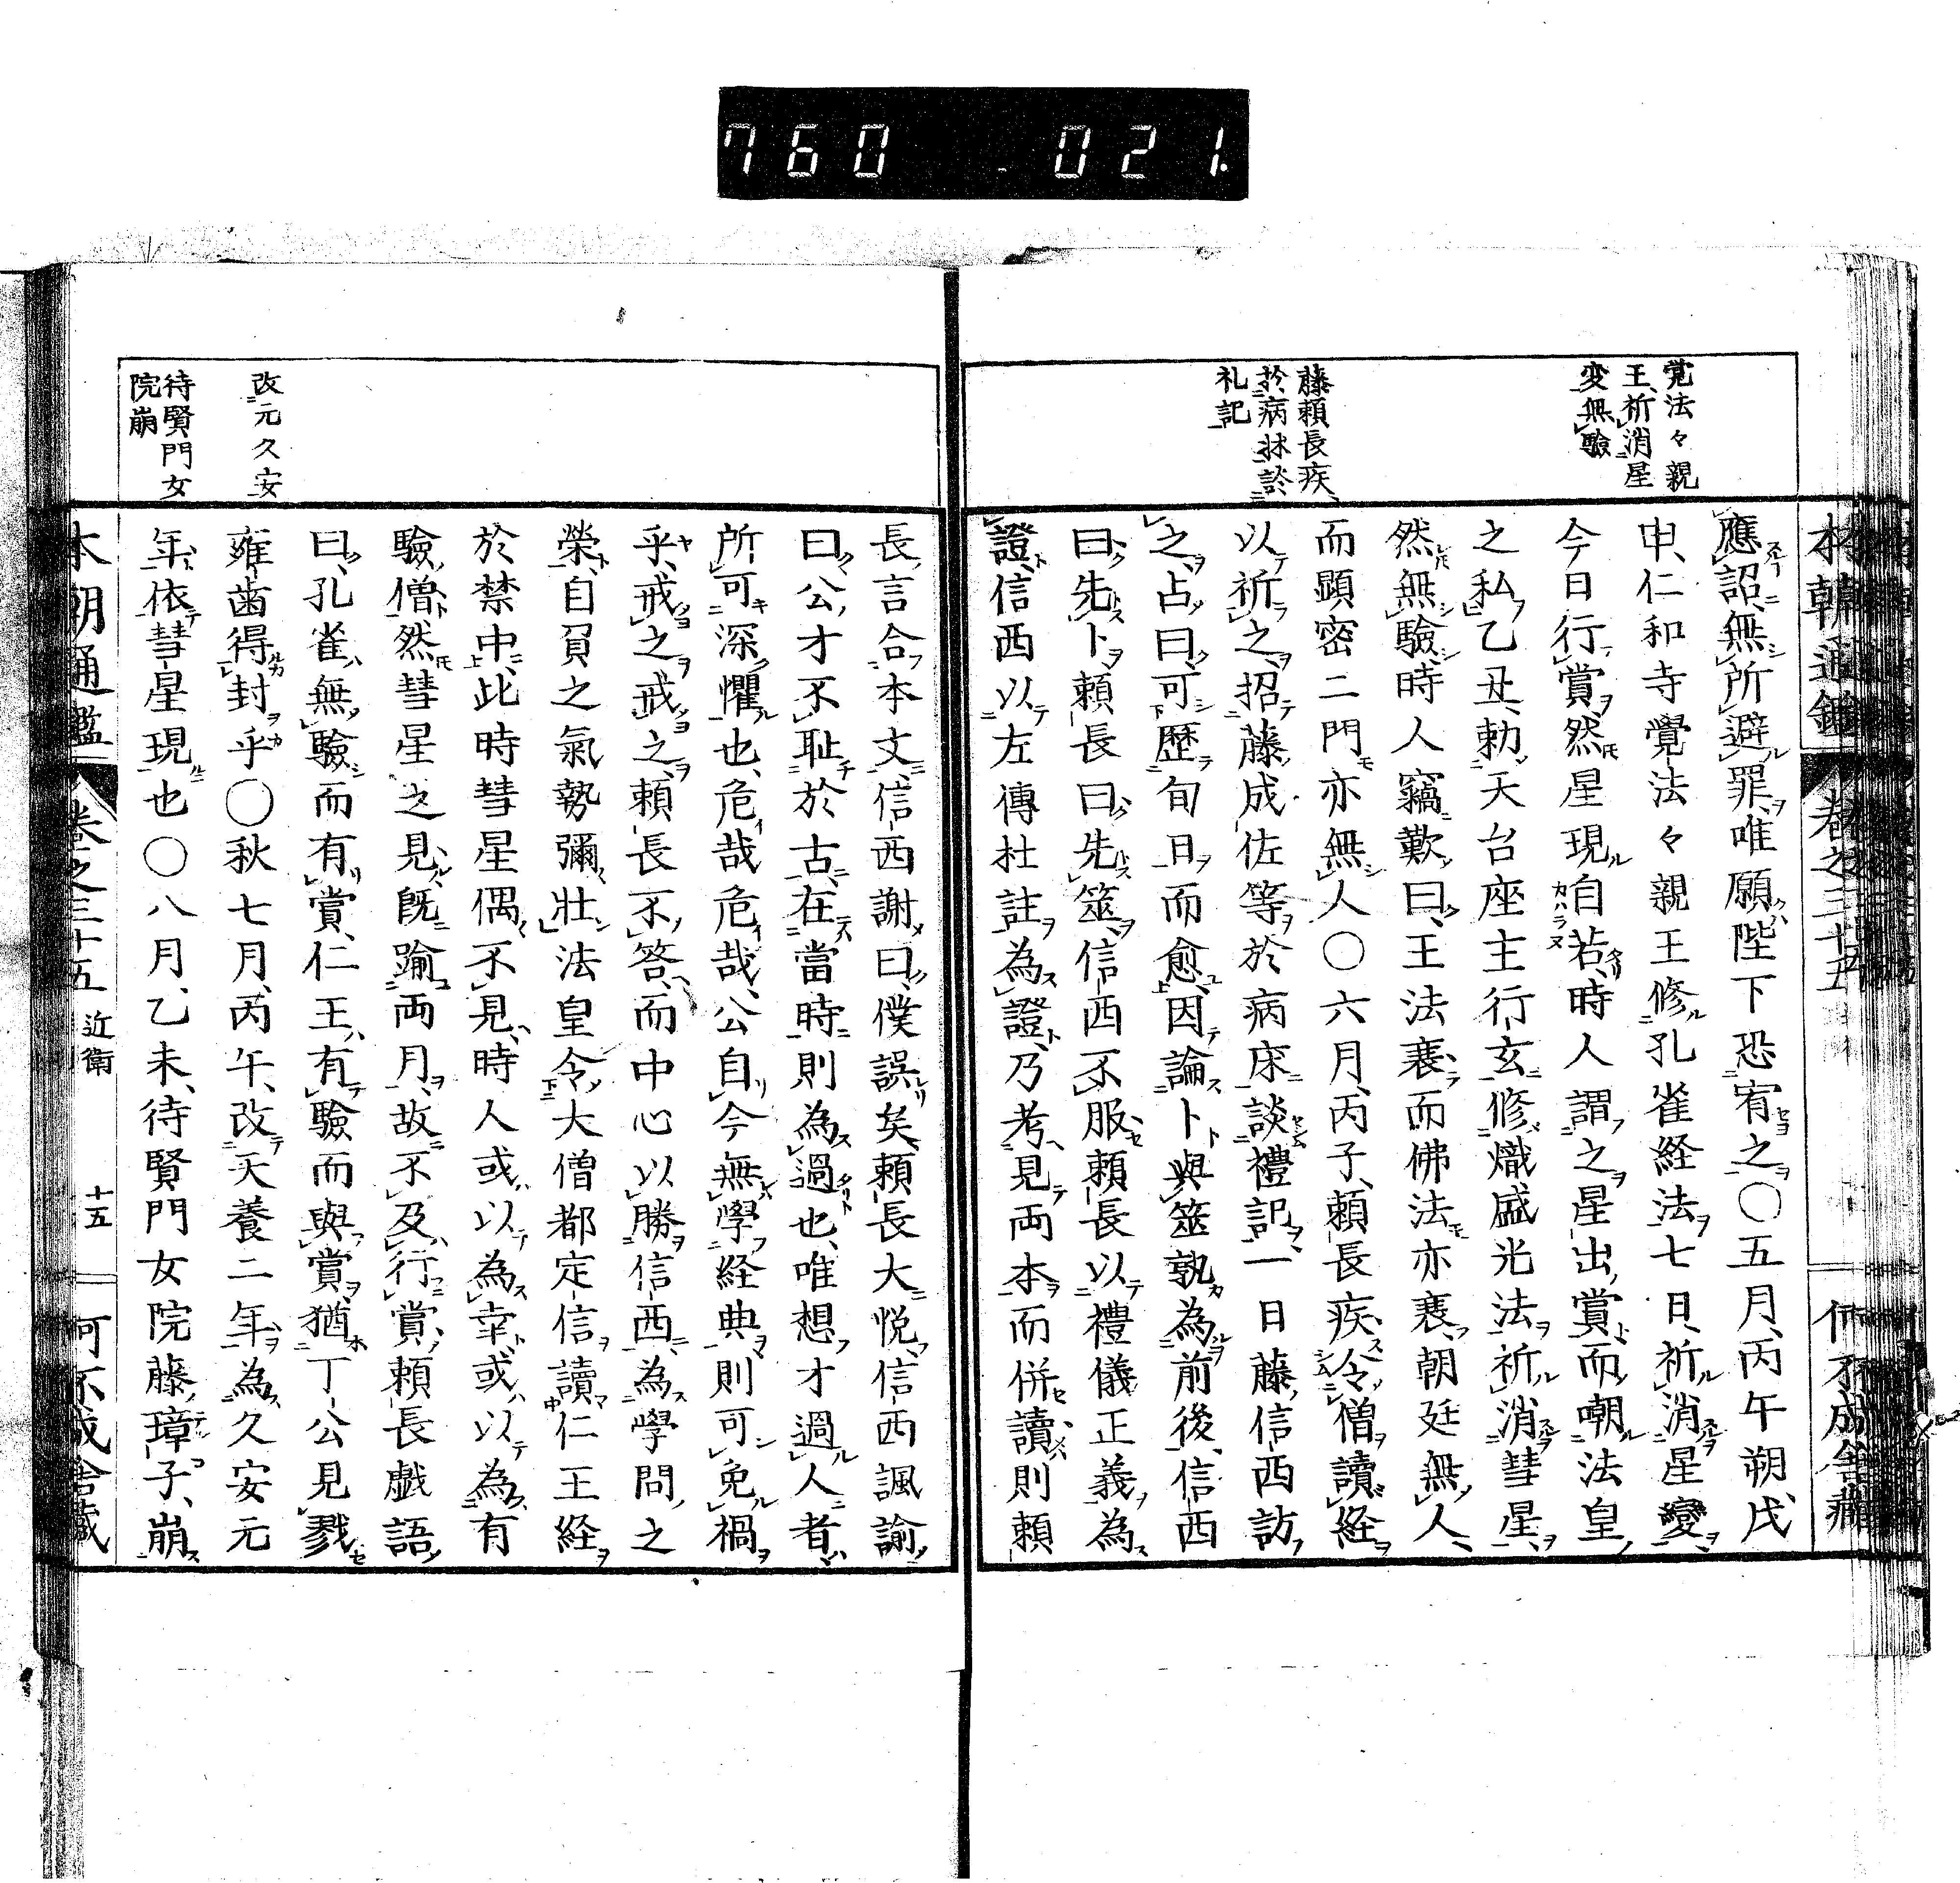 760 021.
覚法々親
王祈消星
変無驗
藤頼長疾
於病牀談
礼記
應詔無所避罪唯願陛下恐宥之〇五月丙午朔戊
申仁和寺覺法々親王修孔雀経法七日祈消星變
今日行賞然星現自若時人謂之星出賞而嘲法皇
之私乙丑勅天台座主行玄修熾盛光法祈消彗星
然無驗時人竊歎曰王法衰而佛法亦衰朝廷無人
而顕密二門亦無人〇六月丙子頼長疾令僧讀経
以祈之招藤成佐等於病床談禮記一日藤信西訪
之占曰可歷旬日而愈因論卜與筮孰為前後信西
曰先卜頼長曰先筮信西不服頼長以禮儀正義為
證信西以左傳杜註為證乃考見両本而併讀則頼
改元久安
待賢門女
院崩
長言合本文信西謝曰僕誤矣頼長大悦信西諷諭
曰公才不耻於古在當時則為過也唯想才過人者
所可深懼也危哉危哉公自今無學経典則可免禍
乎戒之戒之頼長不答而中心以勝信西為學問之
榮自負之氣勢彌壯法皇令大僧都定信讀仁王経
於禁中此時彗星偶不見時人或以為幸或以為有
驗僧然彗星之見既踰両月故不及行賞頼長戯語
曰孔雀無驗而有賞仁王有驗而與賞猶丁公見戮
雍歯得封乎〇秋七月丙午改天養二年為久安元
年依彗星現也〇八月乙未待賢門女院藤璋子崩
本朝通鑑 卷之三十五 近衛 十五